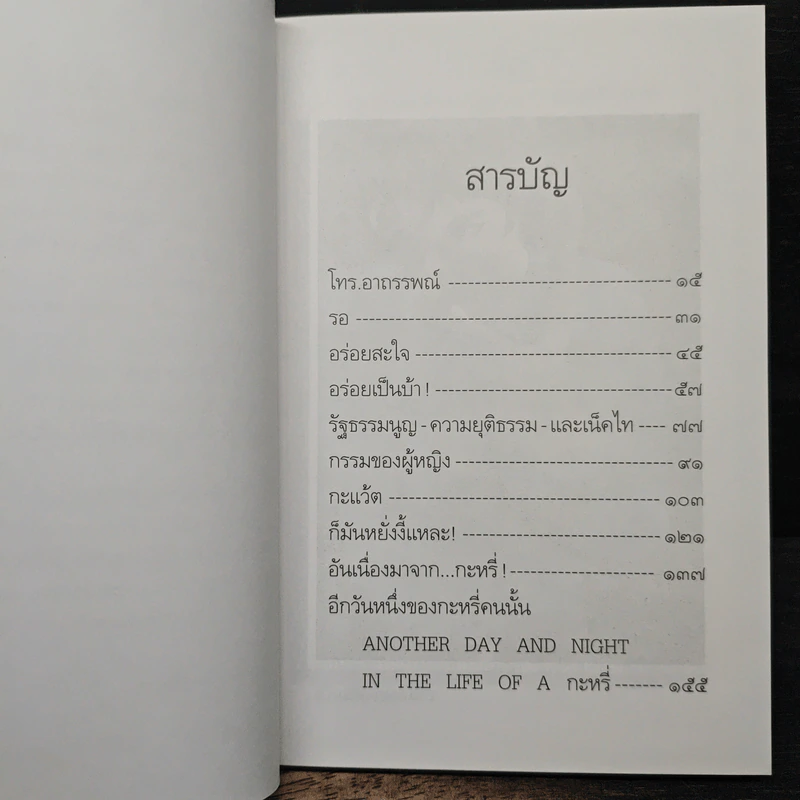 สารบัญ
โทร.อาถรรพณ์ ---------------------------------- ๑๕
รอ ------------------------------------------------ ๓๑
อร่อยสะใจ --------------------------------------- ๔๕
อร่อยเป็นบ้า ! ------------------------------------ ๕๗
รัฐธรรมนูญ - ความยุติธรรม - และเน็คไท ---- ๗๗
กรรมของผู้หญิง --------------------------------- ๙๑
กะแว้ต ----------------------------------------- ๑๐๓
ก็มันหยั่งงี้แหละ! ------------------------------ ๑๒๑
อันเนื่องมาจาก...กะหรี่ ! ---------------------- ๑๓๗
อีกวันหนึ่งของกะหรี่คนนั้น
ANOTHER DAY AND NIGHT
IN THE LIFE OF A กะหรี่ ------- ๑๕๕